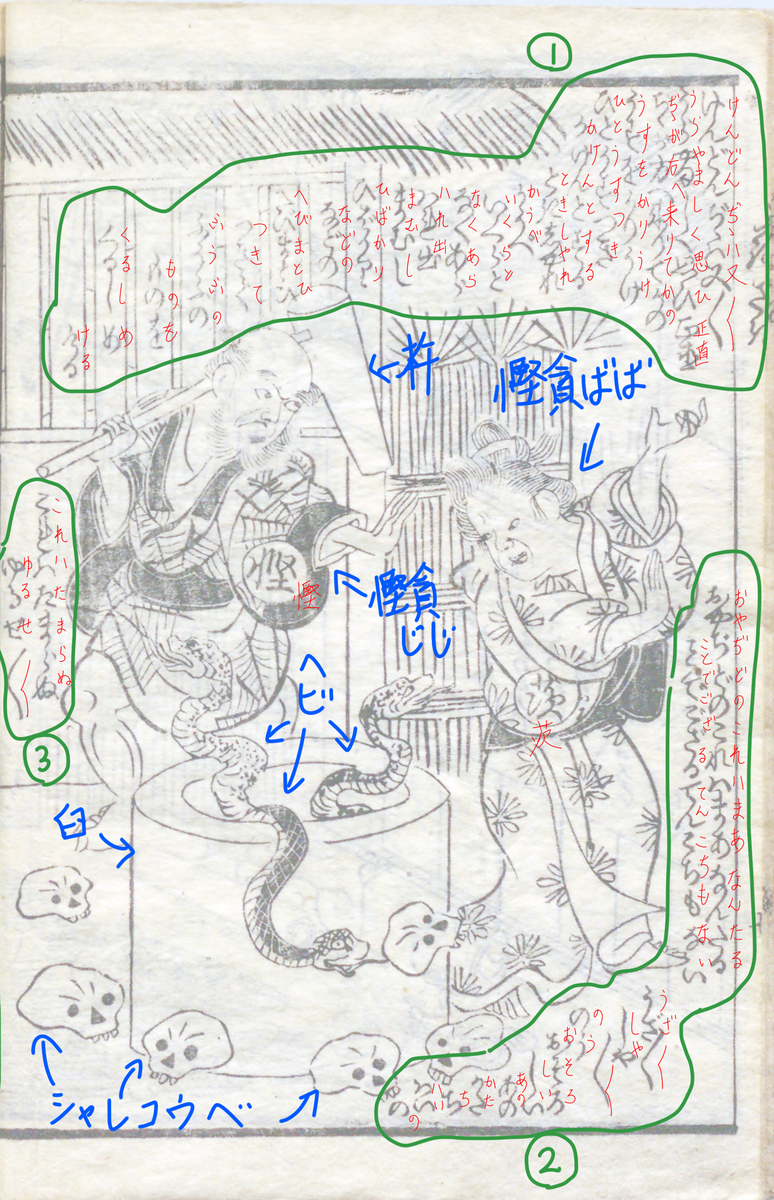 ①
けんどんぢゞハ又〱
うらやましく思ひ正直
ぢゞが方へ来りてかの
うすをかりうけ
ひとうすつき
かけんとする
ときしやれ
かうべ
いくらと
なくあら
ハれ出
まむし
ひばかり
などの
へびまとひ
つきて
ふうふの
ものを
くるしめ
ける
←杵
慳貪ばば
慳
慳
慳貪
じじ
ヘビ
茨
臼
シャレコウベ
②
おやぢどのこれハまあなんたる
ことでござるてんこちもない
うざ〱
しや
のう〱
おそろ
しい
あの
かた
ち
③
これハたまらぬ
ゆるせ〱